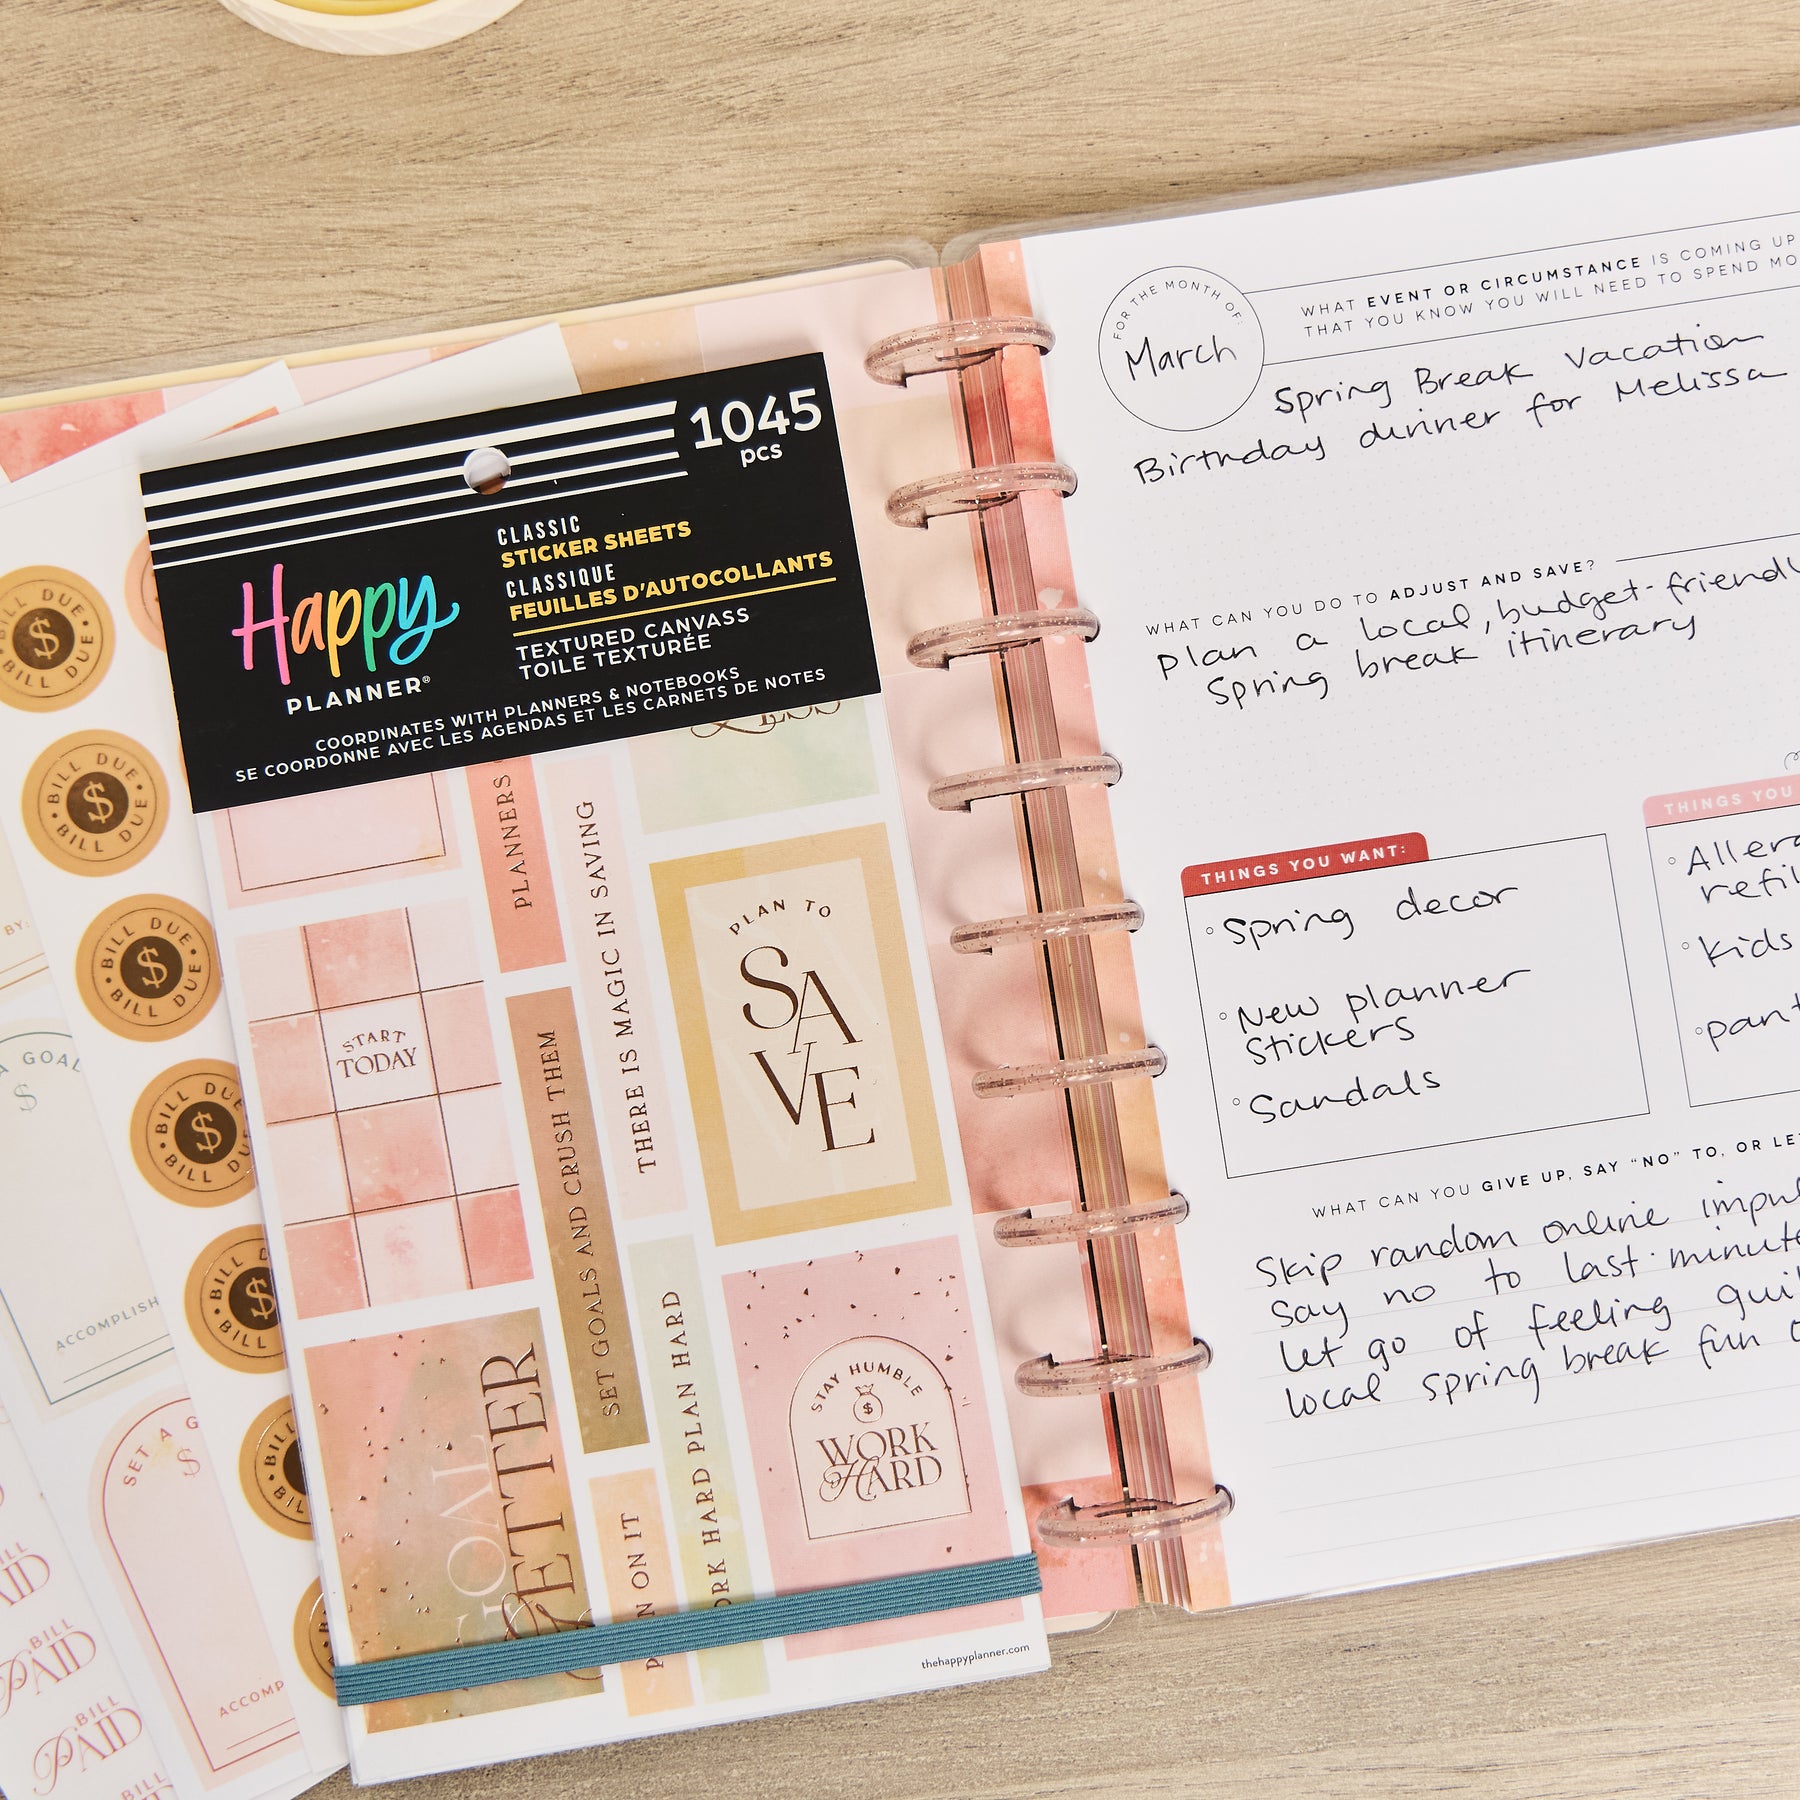 1045
pcs
CLASSIC
STICKER SHEETS
CLASSIQUE
FEUILLES D'AUTOCOLLANTS
TEXTURED CANVASS
TOILE TEXTURÉE
Happy
PLANNER®
COORDINATES WITH PLANNERS & NOTEBOOKS
SE COORDONNE AVEC LES AGENDAS ET LES CARNETS DE NOTES
PLANNERS
THERE IS MAGIC IN SAVING
PLAN TO
SAVE
START
TODAY
SET GOALS AND CRUSH THEM
WORK HARD PLAN HARD
STAY HUMBLE
$
WORK
HARD
GOAL
GETTER
PLAN ON IT
thehappyplanner.com
BILL DUE • BILL DUE
$
BILL DUE • BILL DUE •
$
BILL DUE • BILL DUE •
$
BILL DUE • BILL DUE
$
BILL
$
BILL
BILL
BY:
A GOAL
$
ACCOMPLISH
SET A G
$
ACCOMP
BILL
PAID
BILL
PAID
BILL
PAID
BILL
FOR THE MONTH OF:
March
WHAT EVENT OR CIRCUMSTANCE IS COMING UP
THAT YOU KNOW YOU WILL NEED TO SPEND MO
Spring Break Vacation
Birthday dinner for Melissa
WHAT CAN YOU DO TO ADJUST AND SAVE?
plan a local, budget-friendly
Spring break itinerary
THINGS YOU WANT:
Spring decor
New planner
stickers
Sandals
THINGS YOU
Allerg
refil
kids
pant
WHAT CAN YOU GIVE UP, SAY "NO" TO, OR LET
Skip random online impul
Say no to last-minute
let go of feeling guil
local spring break fun